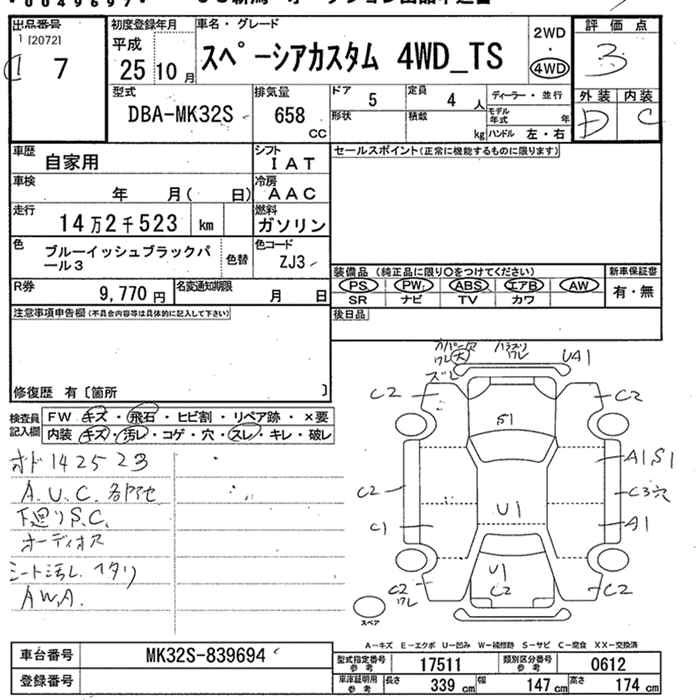 出品番号
[2072]
7
初度登録年月
平成
25 10月
車名・グレード
スペーシアカスタム 4WD_TS
2WD
・
4WD
評価点
3
外装 内装
D C
型式
DBA-MK32S
排気量
658
CC
ドア 5
定員 4 人
形状
積載 kg
ディーラー・並行
モデル年式 年
ハンドル 左・右
車歴
自家用
シフト
IAT
車検
年 月( 日)
冷房
AAC
走行
14万2千523 km
燃料
ガソリン
色
ブルーイッシュブラックパール3
色替
色コード
ZJ3
R券
9,770円
名変通知期限
月 日
セールスポイント(正常に機能するものに限ります)
装備品 (純正品に限り○をつけてください)
PS PW ABS エアB AW
SR ナビ TV カワ
新車保証書
有・無
後日品
注意事項申告欄(不具合内容等は具体的に記入して下さい)
修復歴 有〔箇所 〕
検査員記入欄
FW キズ・飛石・ヒビ割・リペア跡・×要
内装・キズ・汚レ・コゲ・穴・スレ・キレ・破レ
オド142523
A.U.C. 各所
下廻りS.C.
オーディオス
シート汚レ. ヘタリ
A.W.A.
カバー欠
ワレ 大
ズレ
ワレ
UA1
C2
C2
S1
A1S1
C2
C3穴
U1
C1
A1
U1
C2
C2
ワレ
C2
スペア
A-キズ E-エクボ U-凹み W-補修跡 S-サビ C-腐食 XX-交換済
車台番号
MK32S-839694
登録番号
型式指定番号
参考
17511
類別区分番号
参考
0612
車庫証明用
参考
長さ 339 cm
幅 147 cm
高さ 174 cm